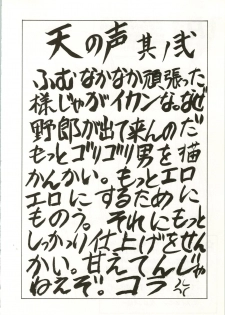 天の声 其ノ弐
ふむなかなか頑張った
様じゃがイカンな。なぜ
野郎が出て来んのだ
もっとゴリゴリ男を描
かんかい。もっとエロ
エロにするために
ものう。それにもっと
しっかり仕上げをせん
かい。甘えてんじゃ
ねえぞ!コラ